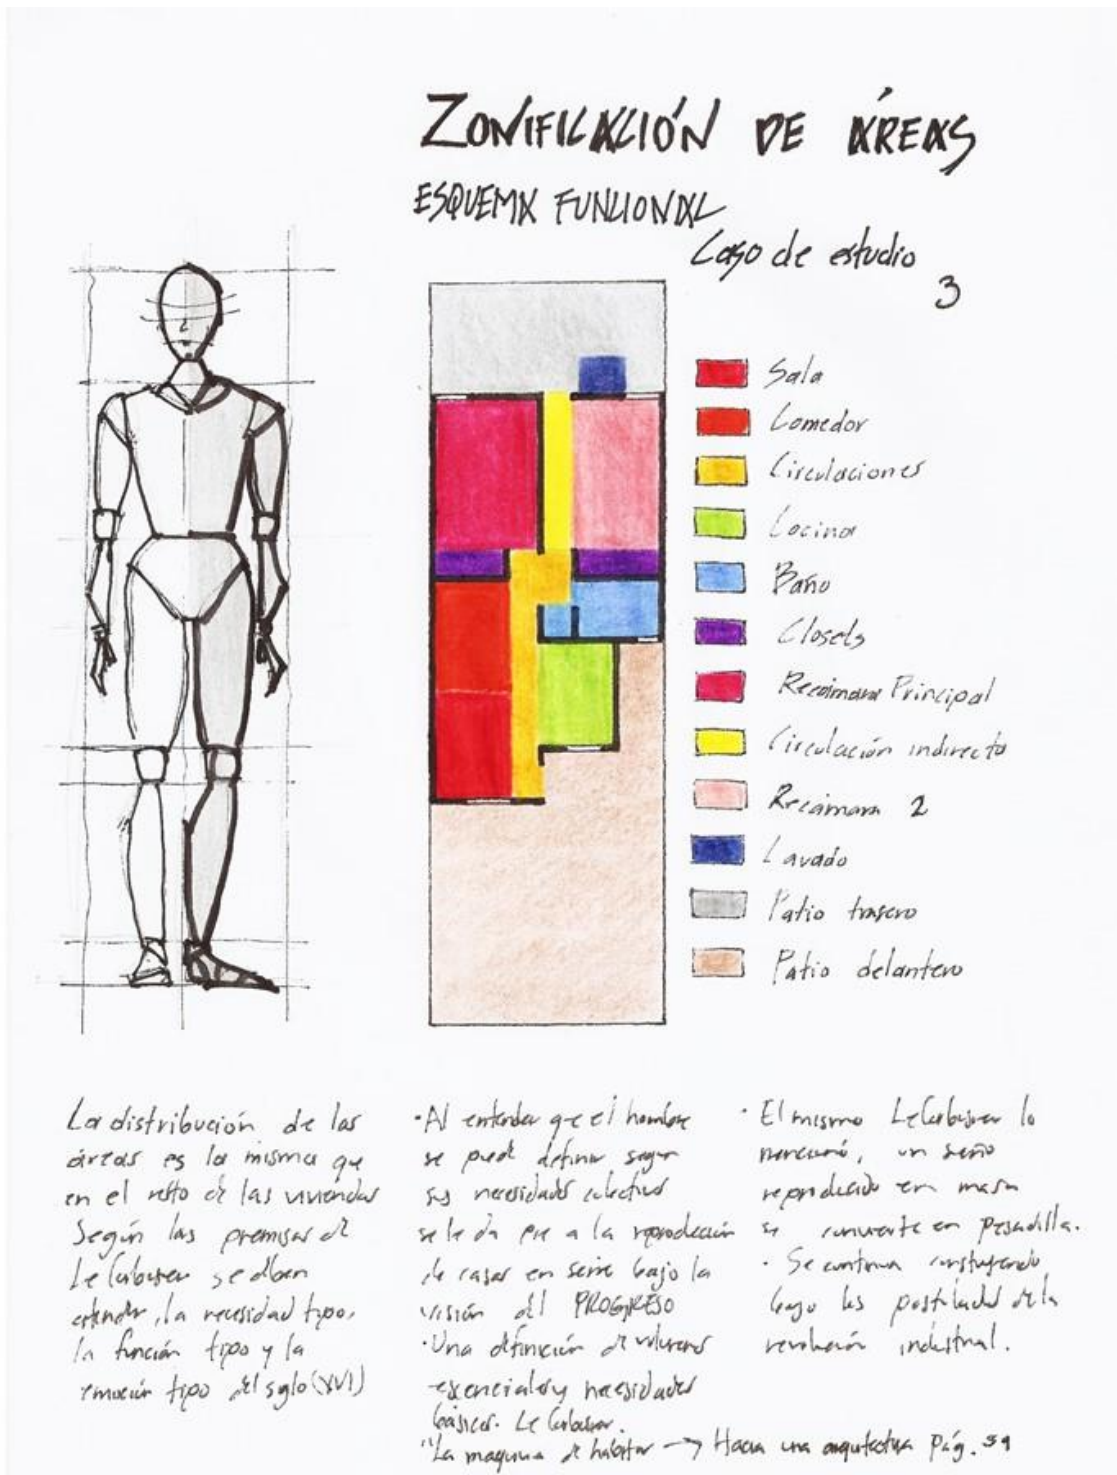 ZONIFICACIÓN DE ÁREAS
ESQUEMA FUNCIONAL
Caso de estudio
3
Sala
Comedor
Circulaciones
Cocina
Baño
Closets
Recámara Principal
Circulación indirecta
Recámara 2
Lavado
Patio trasero
Patio delantero
La distribución de las
áreas es la misma que
en el resto de las viviendas
Según las premisas de
Le Corbusier se deben
atender, la necesidad tipo,
la función tipo y la
emoción tipo del siglo (XVI)
·Al entender que el hombre
se puede definir segun
sus necesidades colectivas
se le da pie a la reproducción
de casas en serie bajo la
visión del PROGRESO
·Una definición de volumenes
esenciales y necesidades
básicas. Le Corbusier.
"La maquina de habitar → Hacia una arquitectura pág. 59
· El mismo Le Corbusier lo
mencionó, un sueño
reproducido en masa
se convierte en pesadilla.
· Se continua construyendo
bajo los postulados de la
revolución industrial.